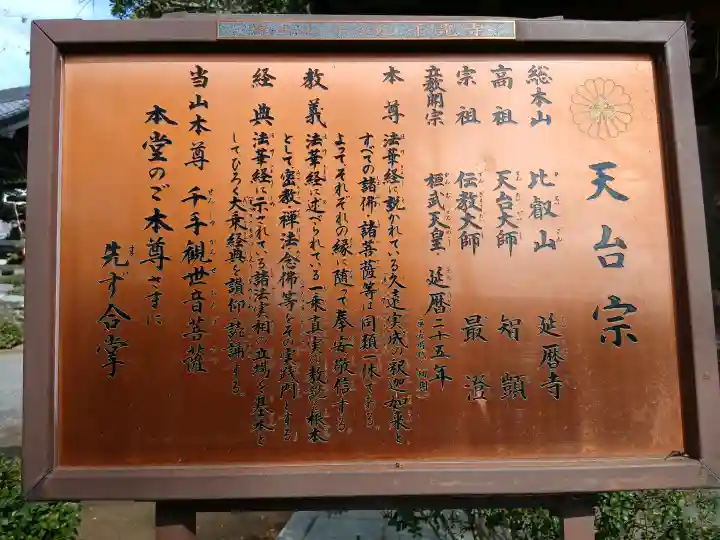 天台宗
総本山 比叡山 延暦寺
高祖 天台大師 智顗
宗祖 伝教大師 最澄
立教開宗 桓武天皇・延暦二十五年
本尊 法華経に説かれている久遠実成の釈迦如来と
すべての諸佛・諸菩薩等は同類一体である。
よってそれぞれの縁に随って奉安敬信する。
教義 法華経に述べられている一乗真実の教説を根本
として密教、禅法、念佛等をその実践門とする。
経典 法華経に示されている諸法実相の立場を基本と
してひろく大乗経典を讃仰読誦する。
当山本尊 千手観世音菩薩
本堂のご本尊さまに
先ず合掌